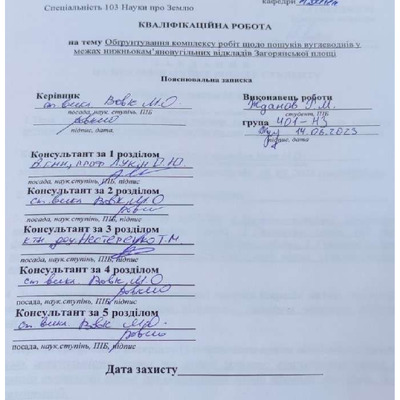 Спеціальність 103 Науки про Землю
кафедри
КВАЛІФІКАЦІЙНА РОБОТА
на тему Обґрунтування комплексу робіт щодо пошуків вуглеводнів у
межах нижньокам’яновугільних відкладів Загорянської площі
Пояснювальна записка
Керівник
ст викл. Вовк М.О
посада, наук.ступінь, ПІБ
підпис, дата
Виконавець роботи
Жданов Г.М.
студент, ПІБ
група 401-НЗ
14.06.2023
підпис, дата
Консультант за 1 розділом
посада, наук.ступінь, ПІБ, підпис
Консультант за 2 розділом
ст викл. Вовк М.О
посада, наук.ступінь, ПІБ, підпис
Консультант за 3 розділом
ктн доц. Нестеренко Т.М.
посада, наук.ступінь, ПІБ, підпис
Консультант за 4 розділом
ст викл. Вовк М.О
посада, наук.ступінь, ПІБ, підпис
Консультант за 5 розділом
ст викл. Вовк М.О.
посада, наук.ступінь, ПІБ, підпис
Дата захисту